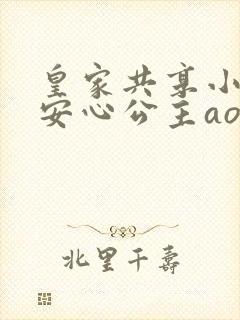 皇家共享小
安心公主ao
北里千寿